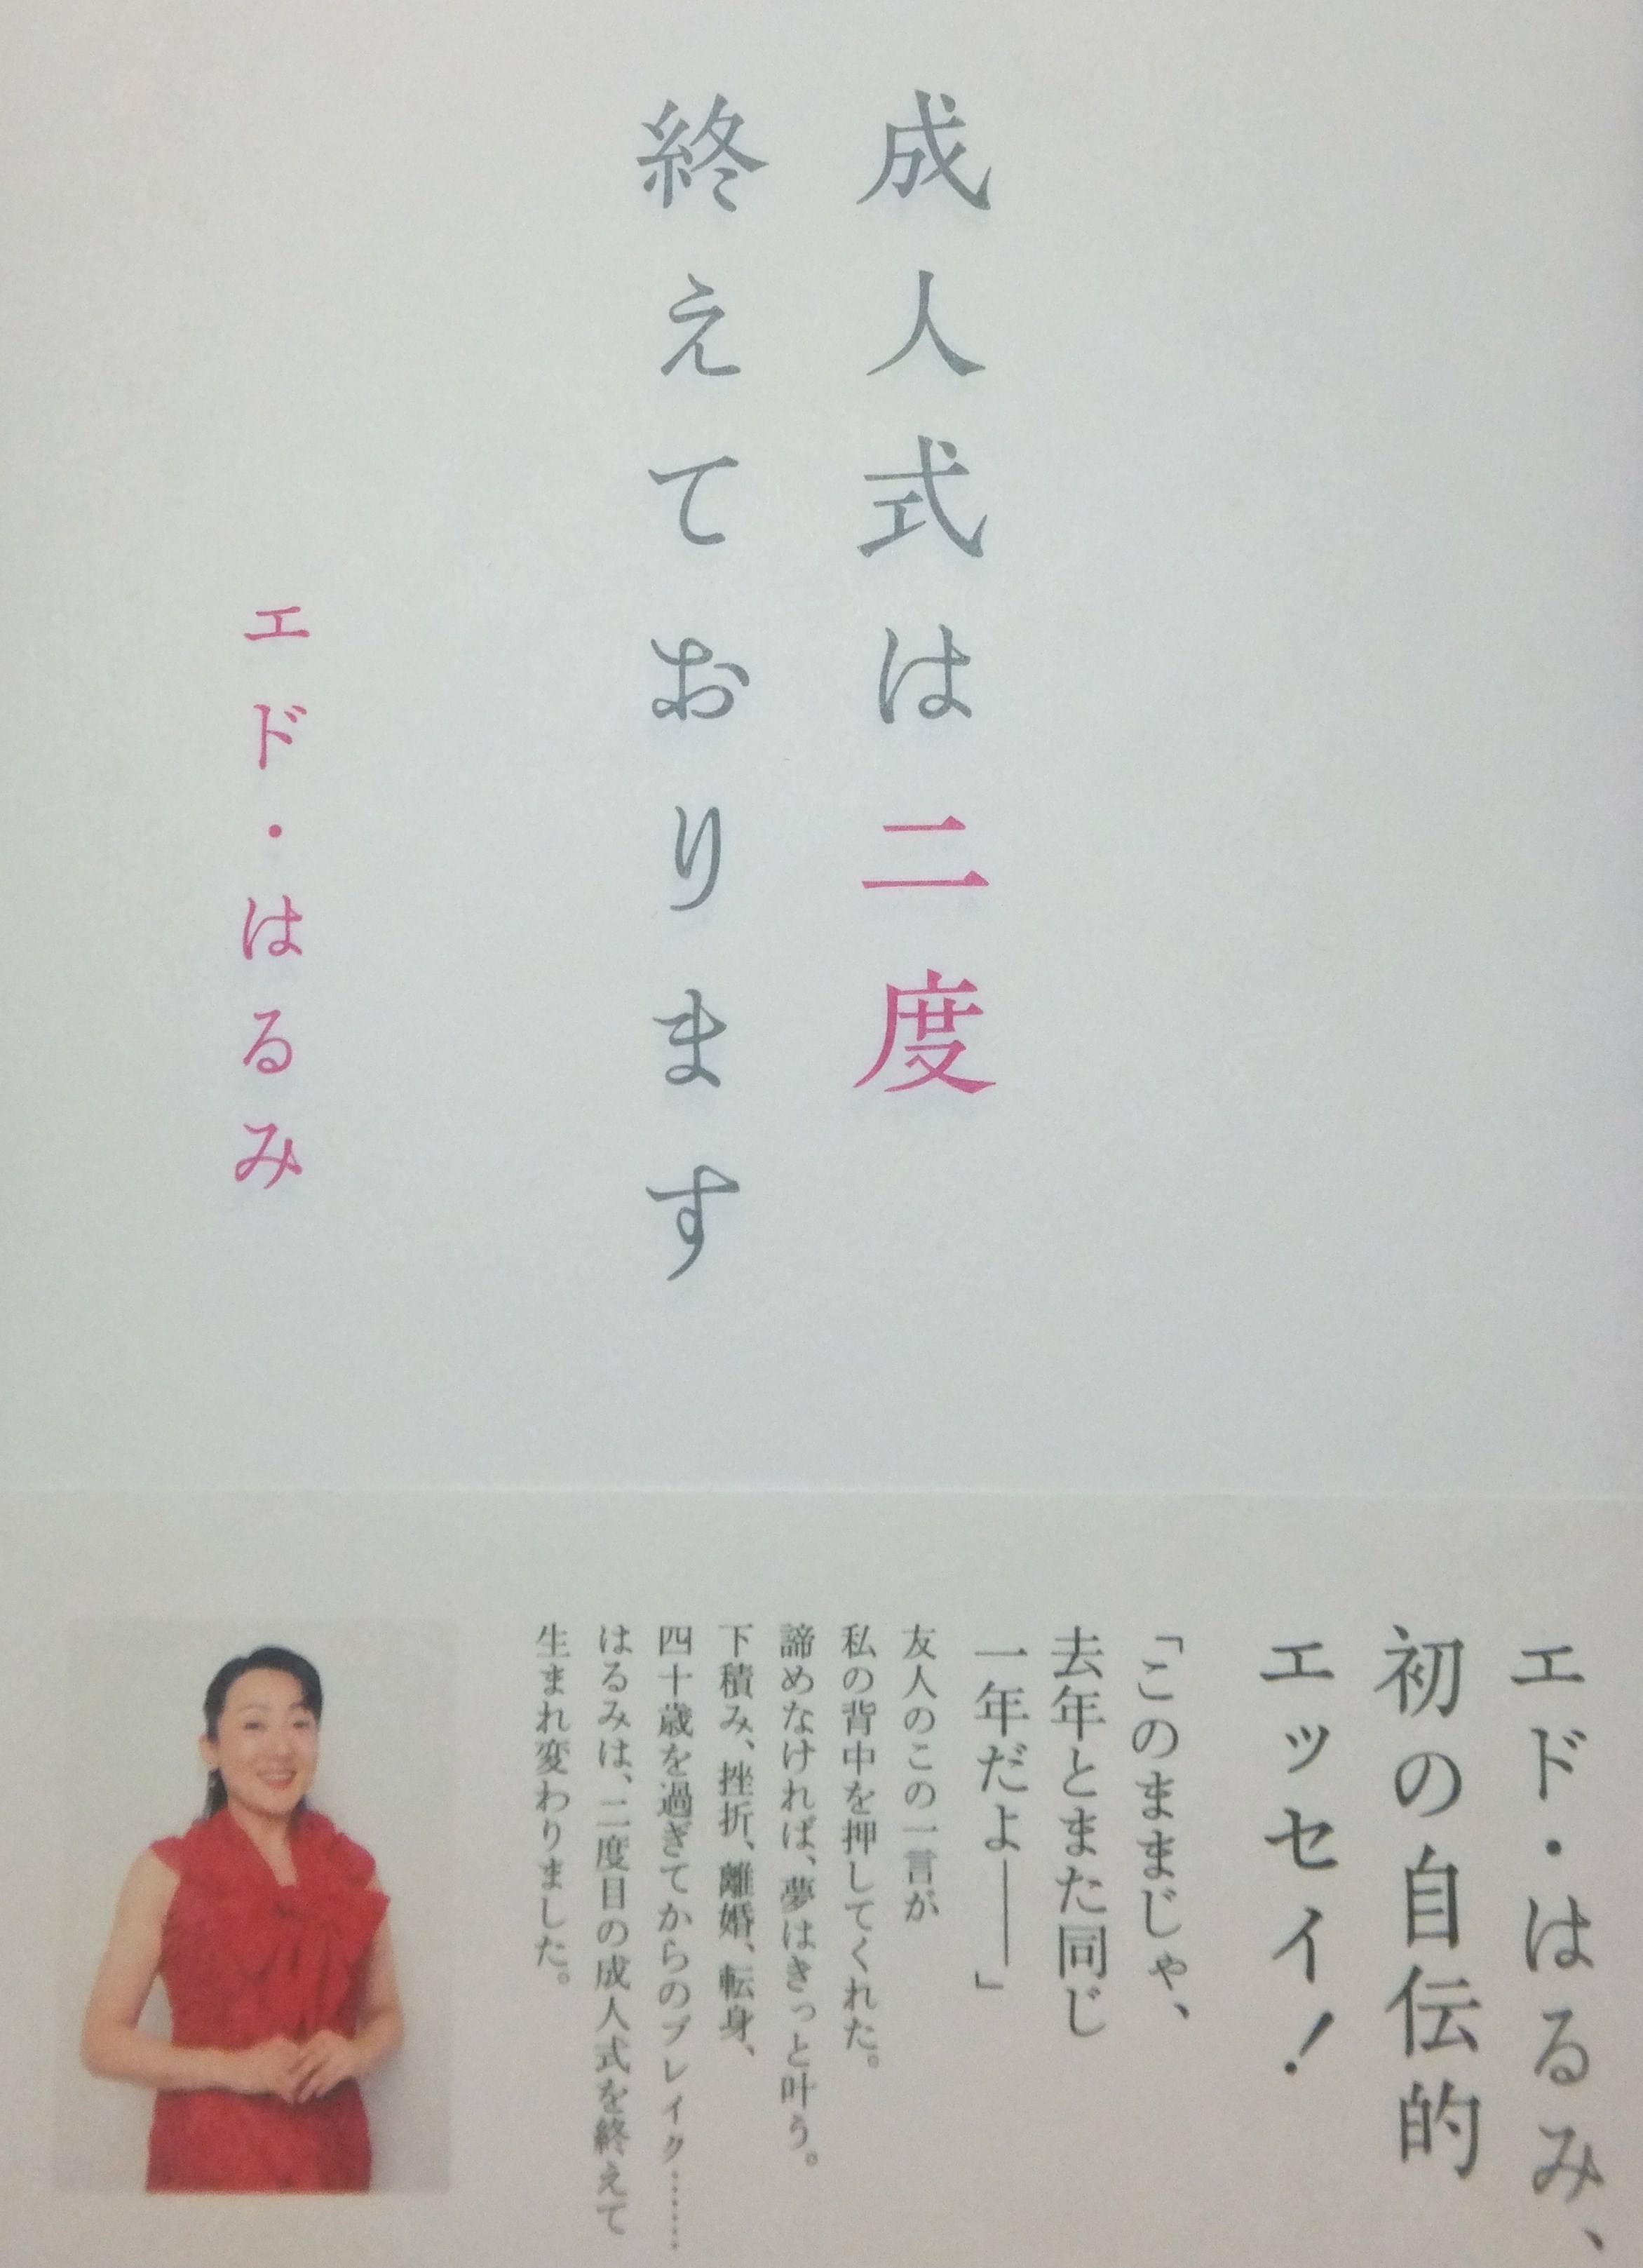 成人式は二度
終えております
エド・はるみ
エド・はるみ、
初の自伝的
エッセイ！
「このままじゃ、
去年とまた同じ
一年だよ――」
友人のこの一言が
私の背中を押してくれた。
諦めなければ、夢はきっと叶う。
下積み、挫折、離婚、転身、
四十歳を過ぎてからのブレイク……
はるみは、二度目の成人式を終えて
生まれ変わりました。